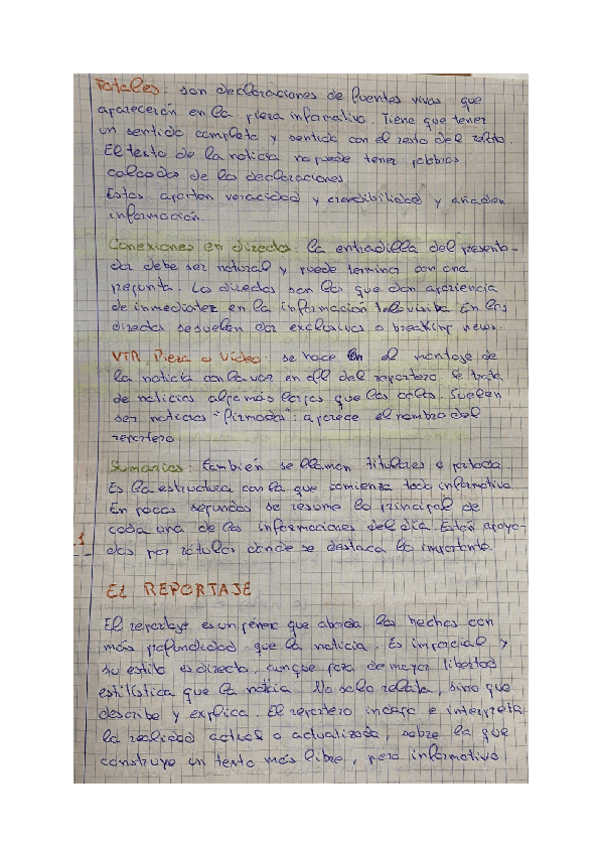 Totales: son declaraciones de fuentes vivas que
aparecerán en la pieza informativa. Tiene que tener
un sentido completo y sentido con el resto del
El texto de la noticia no puede tener palabras
calcadas de las declaraciones
Estos aportan veracidad y credibilidad y añaden
información.
Conexiones en directo: la entradilla del presenta-
dor debe ser natural y puede termina con una
pregunta. Lo directos son los que dan apariencia
de inmediatez en la información televisiva. En los
directos se suelen dar exclusivas o breaking news.
VTR, Pieza o Vídeo: se hace en el montaje de
la noticia con la voz en off del reportero. Se trata
de noticias algo más largas que las colas. Suelen
ser noticias "firmadas": aparece el nombre del
reportero
Sumarios: también se llaman titulares o portada.
Es la estructura con la que comienza todo informativo
En pocos segundos se resume lo principal de
cada una de las informaciones del día. Están apoya-
1
dos por rótulos donde se destaca lo importante.
EL REPORTAJE
El reportaje es un género que aborda los hechos con
más profundidad que la noticia. Es imparcial y
su estilo es directo, aunque goza de mayor libertad
estilística que la noticia. No solo relata, sino que
describe y explica. El reportero indaga e interpreta
la realidad actual o actualizada, sobre la que
construye un texto más libre, pero informativo